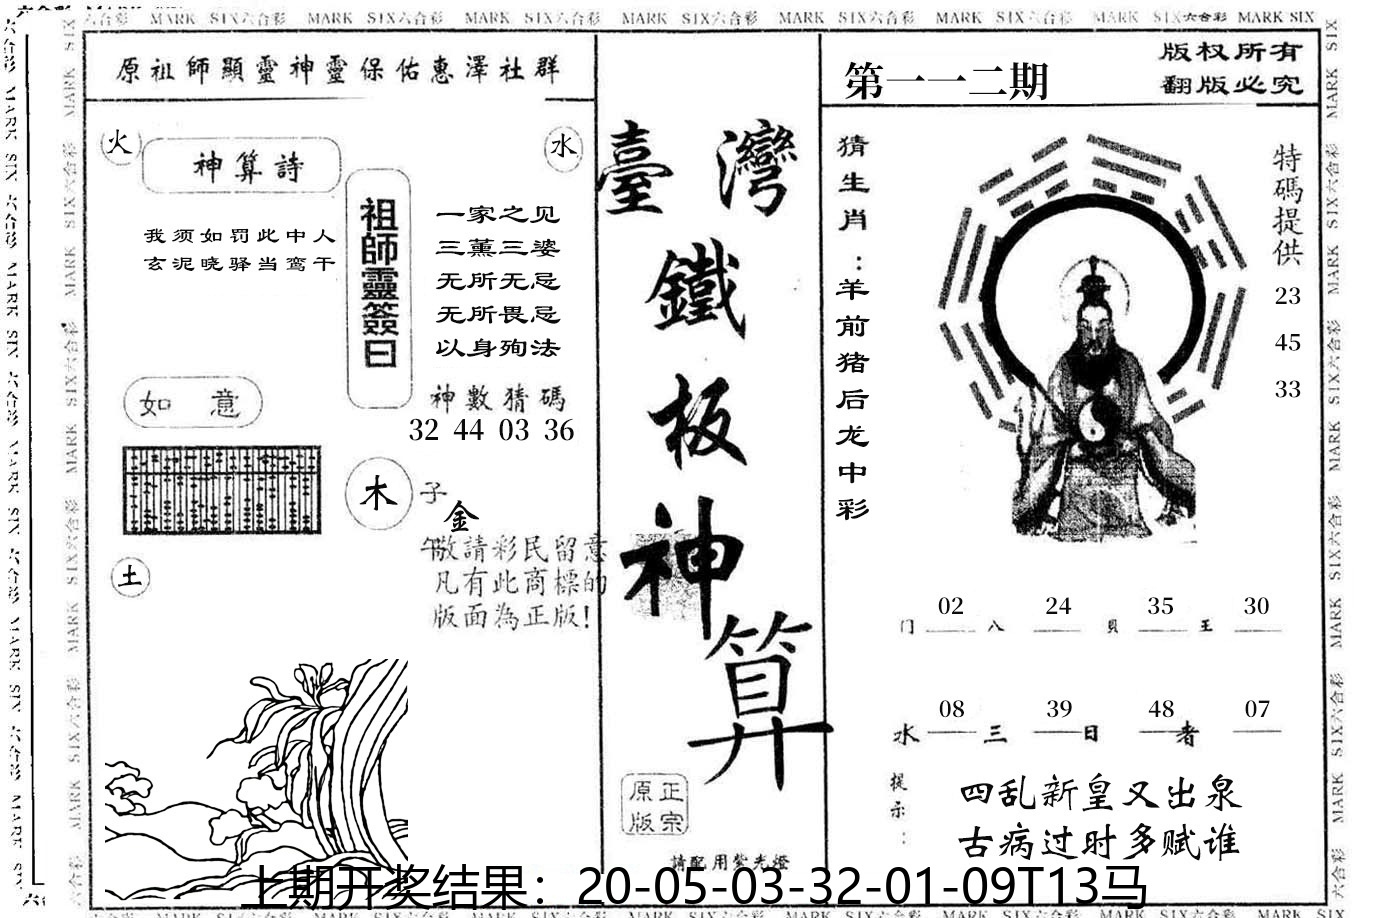 MARK SIX六合彩 MARK SIX六合彩 MARK SIX六合彩 MARK SIX六合彩 MARK SIX六合彩 MARK SIX六合彩 MARK SIX六合彩 MARK SIX
原祖師顯靈神靈保佑惠澤社群
火
水
神算詩
我须如罚此中人
玄泥晓驿当鸾干
祖師靈簽曰
一家之见
三薰三婆
无所无忌
无所畏忌
以身殉法
神數猜碼
32 44 03 36
如 意
木
子
金
午
土
敬請彩民留意
凡有此商標的
版面為正版!
臺灣
鐵
板
神
算
正宗
原版
請配用紫光燈
第一一二期
版权所有
翻版必究
猜生肖：羊前猪后龙中彩
特碼提供
23
45
33
门 02 八 24 貝 35 王 30
水 08 三 39 日 48 者 07
提示：
四乱新皇又出泉
古病过时多赋谁
上期开奖结果：20-05-03-32-01-09T13马